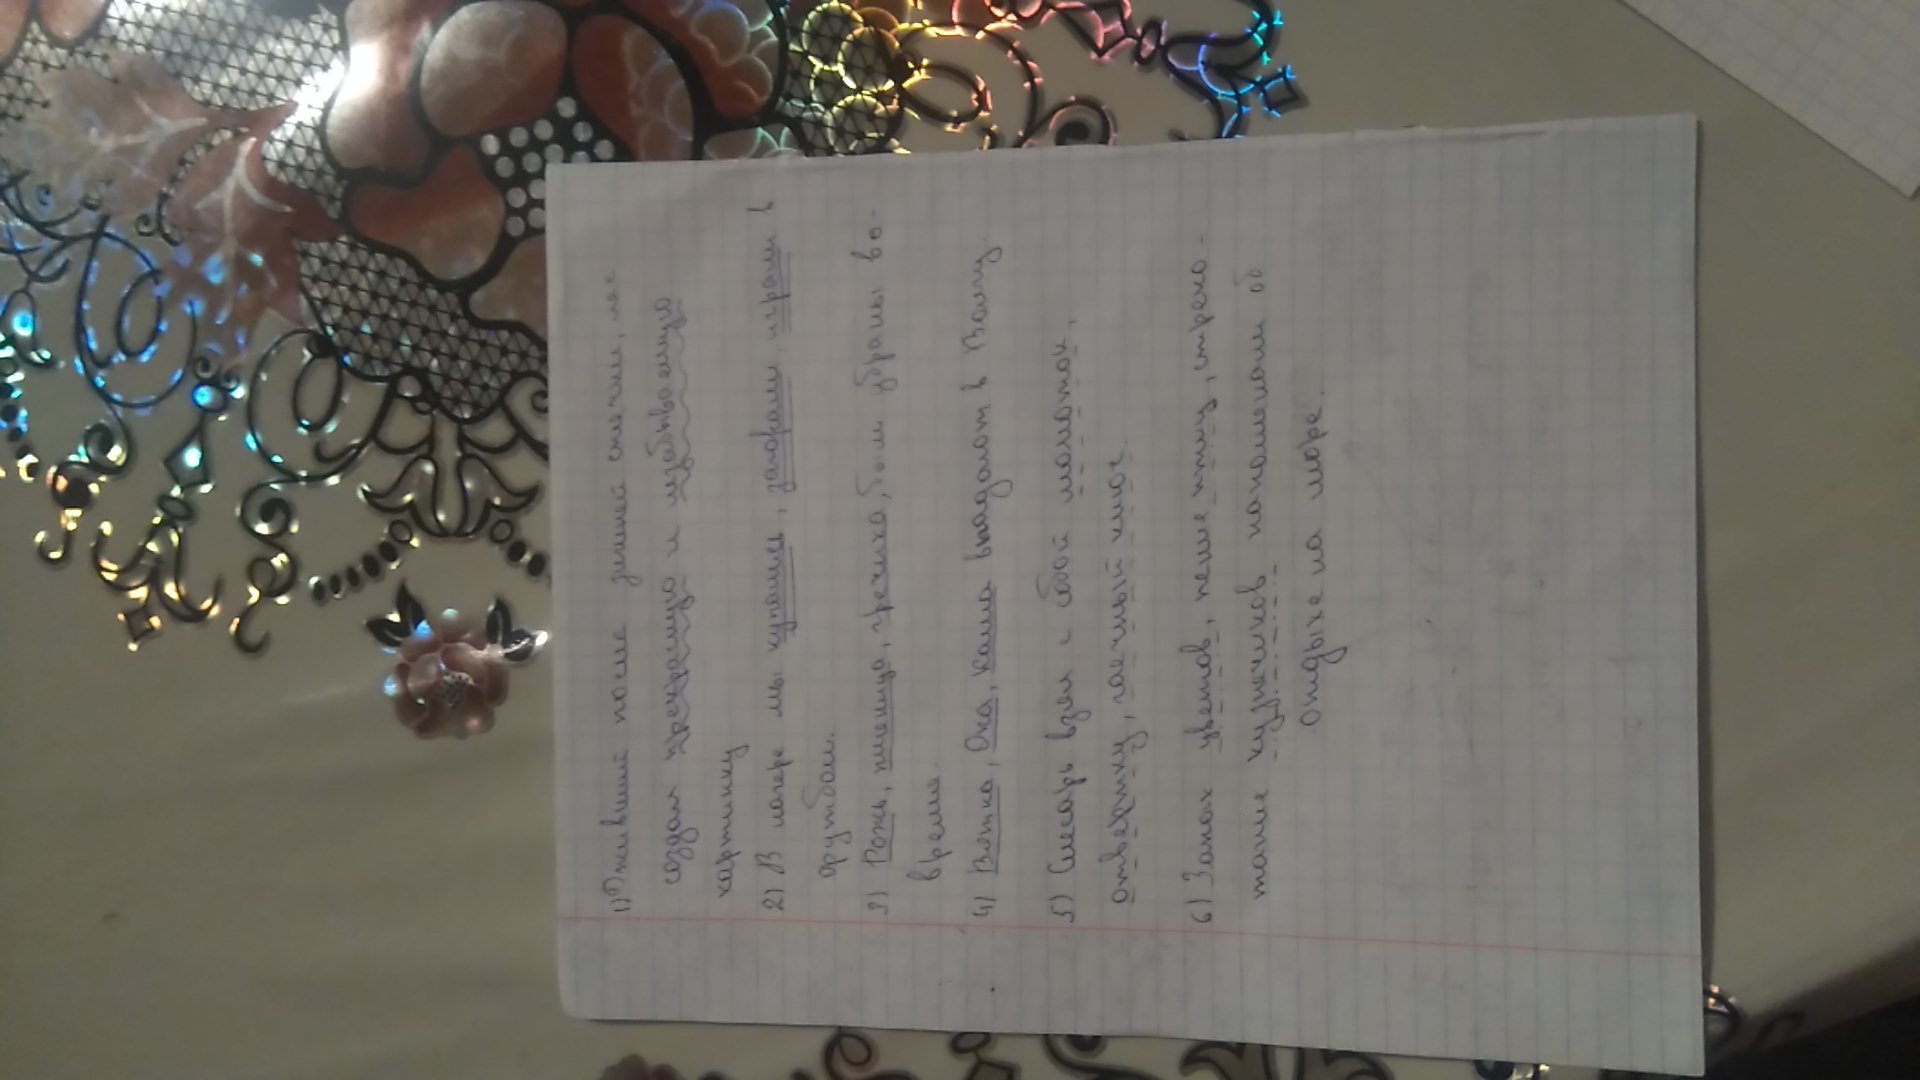 1) Оживший после зимней спячки, лес
создал прекрасную и незабываемую
картинку
2) В лагере мы купались, загорали, играли в
футбол.
3) Рожь, пшеница, гречиха, были убраны во-
время.
4) Вятка, Ока, Кама впадают в Волгу.
5) Слесарь взял с собой молоток,
отвертку, гаечный ключ.
6) Запах цветов, пение птиц, стреко-
тание кузнечиков напомнили об
отдыхе на море.